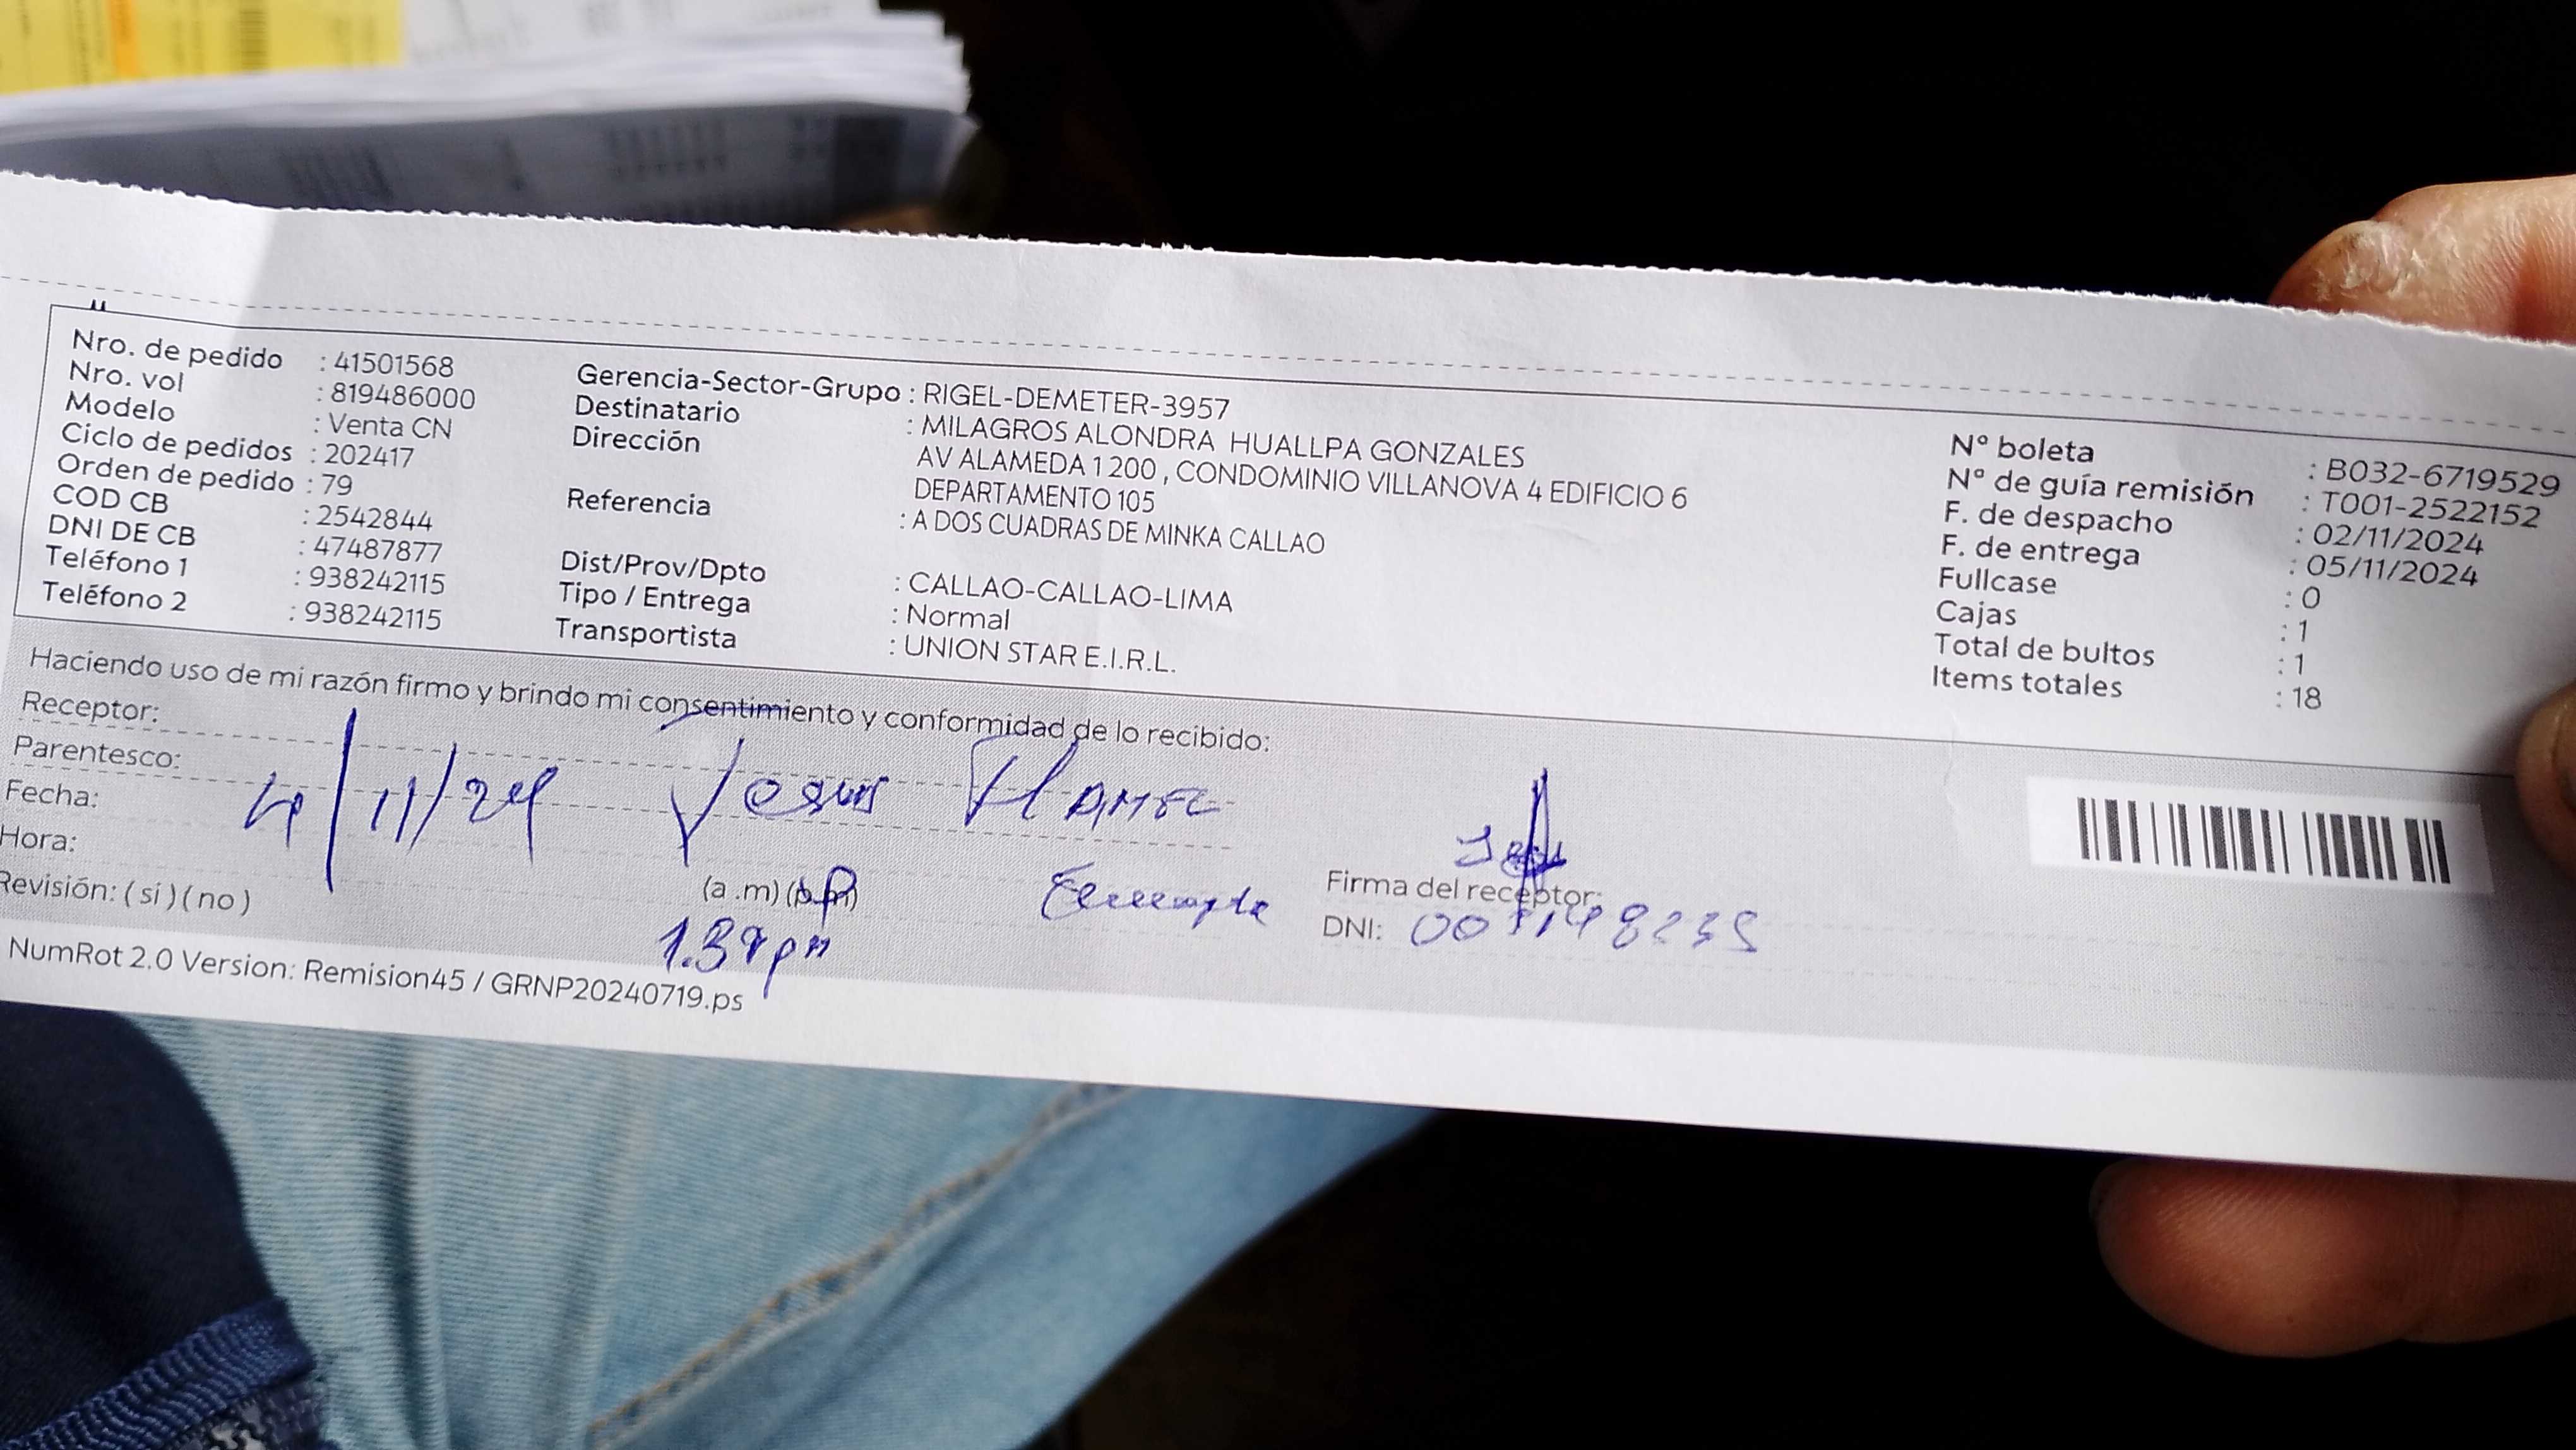 Nro. de pedido : 41501568
Nro. vol : 819486000
Modelo : Venta CN
Ciclo de pedidos : 202417
Orden de pedido : 79
COD CB : 2542844
DNI DE CB : 47487877
Teléfono 1 : 938242115
Teléfono 2 : 938242115
Gerencia-Sector-Grupo : RIGEL-DEMETER-3957
Destinatario : MILAGROS ALONDRA HUALLPA GONZALES
Dirección AV ALAMEDA 1 200 , CONDOMINIO VILLANOVA 4 EDIFICIO 6
DEPARTAMENTO 105
Referencia : A DOS CUADRAS DE MINKA CALLAO
Dist/Prov/Dpto : CALLAO-CALLAO-LIMA
Tipo / Entrega : Normal
Transportista : UNION STAR E.I.R.L.
N° boleta : B032-6719529
N° de guía remisión : T001-2522152
F. de despacho : 02/11/2024
F. de entrega : 05/11/2024
Fullcase : 0
Cajas : 1
Total de bultos : 1
Items totales : 18
Haciendo uso de mi razón firmo y brindo mi consentimiento y conformidad de lo recibido:
Receptor:
Parentesco:
Fecha: 4/11/24 Jesus
Hora: (a .m) (p.m)
Revisión: ( si ) ( no )
Firma del receptor:
DNI:
NumRot 2.0 Version: Remision45 / GRNP20240719.ps